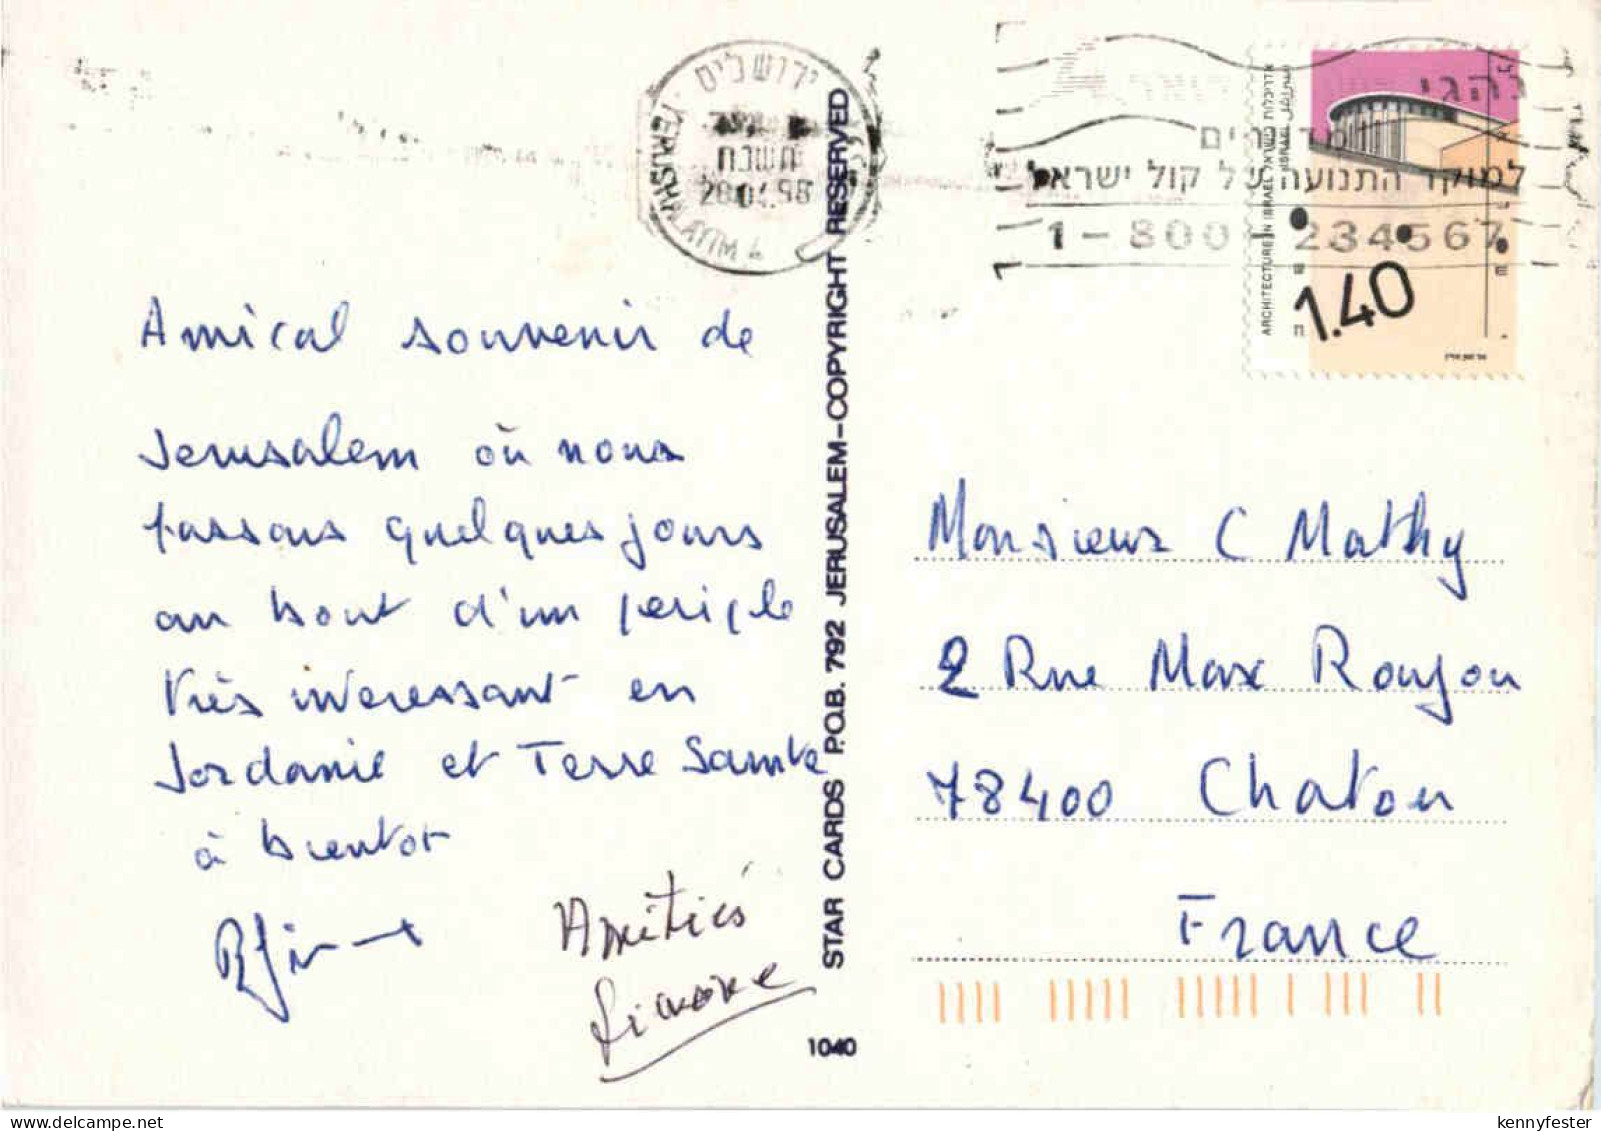 ירושלים
YERUSHALAYIM
תשנח
28.04.98
נהגי
למוקד התנועה של קול ישראל
1-800-234567
ARCHITECTURE IN ISRAEL
אדריכלות בישראל
ISRAEL ישראל
1.40
Amical souvenir de
Jerusalem où nous
passons quelques jours
au bout d'un periple
très interessant en
Jordanie et Terre Sainte
à bientot
Amitiés
Simone
STAR CARDS P.O.B. 792 JERUSALEM-COPYRIGHT RESERVED
1040
Monsieur C Mathy
2 Rue Max Roujou
78400 Chatou
France
kennyfester